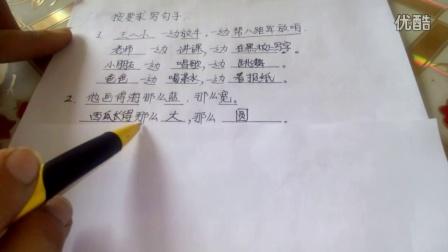 按要求写句子
1. 王八小一边放牛,一边帮八路军放哨.
老师一边讲课,一边在黑板写字
小朋友一边唱歌,一边跳舞
爸爸一边喝茶水,一边看报纸
2. 他画得海那么蓝,那么宽。
西瓜长得那么大,那么圆。
优酷